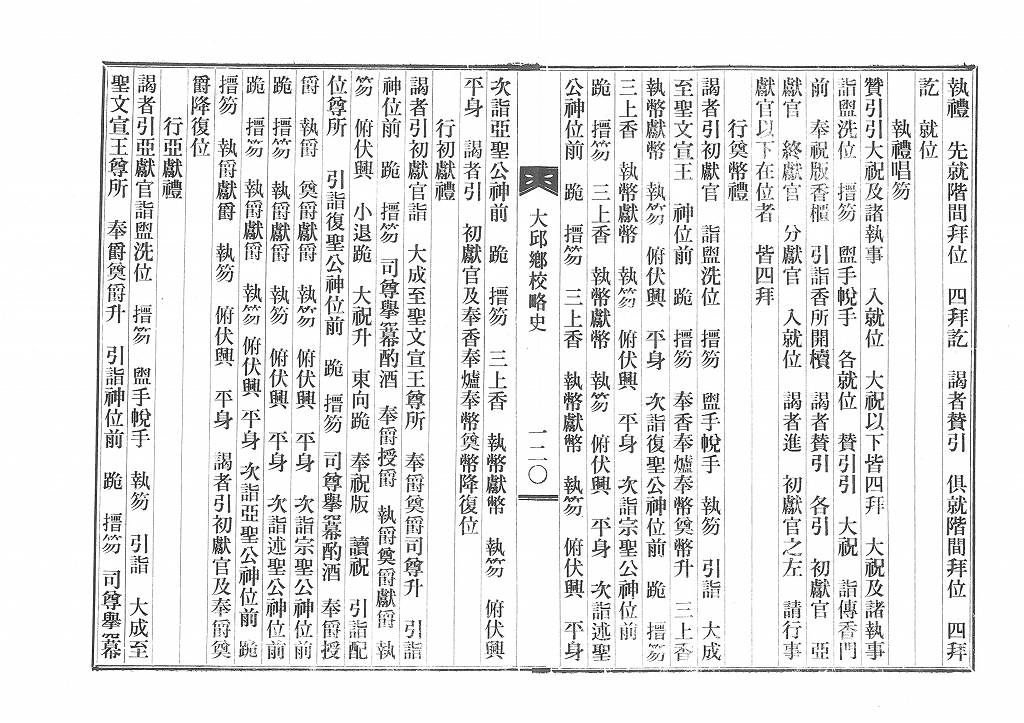 執禮　先就階間拜位　四拜訖　謁者贊引　俱就階間拜位　四拜
訖　就位
執禮唱笏
贊引引大祝及諸執事　入就位　大祝以下皆四拜　大祝及諸執事
詣盥洗位　搢笏　盥手帨手　各就位　贊引引　大祝　詣傳香門
前　奉祝版香櫃　引詣香所開櫝　謁者贊引　各引　初獻官　亞
獻官　終獻官　分獻官　入就位　謁者進　初獻官之左　請行事
獻官以下在位者　皆四拜
行奠幣禮
謁者引初獻官　詣盥洗位　搢笏　盥手帨手　執笏　引詣　大成
至聖文宣王　神位前　跪　搢笏　奉香奉爐奉幣奠幣升　三上香
執幣獻幣　執笏　俯伏興　平身　次詣復聖公神位前　跪　搢笏
三上香　執幣獻幣　執笏　俯伏興　平身　次詣宗聖公神位前
跪　搢笏　三上香　執幣獻幣　執笏　俯伏興　平身　次詣述聖
公神位前　跪　搢笏　三上香　執幣獻幣　執笏　俯伏興　平身
大邱鄕校略史　一二〇
次詣亞聖公神前　跪　搢笏　三上香　執幣獻幣　執笏　俯伏興
平身　謁者引　初獻官及奉香奉爐奉幣奠幣降復位
行初獻禮
謁者引初獻官詣　大成至聖文宣王尊所　奉爵奠爵司尊升　引詣
神位前　跪　搢笏　司尊擧冪酌酒　奉爵授爵　執爵奠爵獻爵　執
笏　俯伏興　小退跪　大祝升　東向跪　奉祝版　讀祝　引詣配
位尊所　引詣復聖公神位前　跪　搢笏　司尊擧冪酌酒　奉爵授
爵　執爵　奠爵獻爵　執笏　俯伏興　平身　次詣宗聖公神位前
跪　搢笏　執爵獻爵　執笏　俯伏興　平身　次詣述聖公神位前
跪　搢笏　執爵獻爵　執笏　俯伏興　平身　次詣亞聖公神位前　跪
搢笏　執爵獻爵　執笏　俯伏興　平身　謁者引初獻官及奉爵奠
爵降復位
行亞獻禮
謁者引亞獻官詣盥洗位　搢笏　盥手帨手　執笏　引詣　大成至
聖文宣王尊所　奉爵奠爵升　引詣神位前　跪　搢笏　司尊擧冪